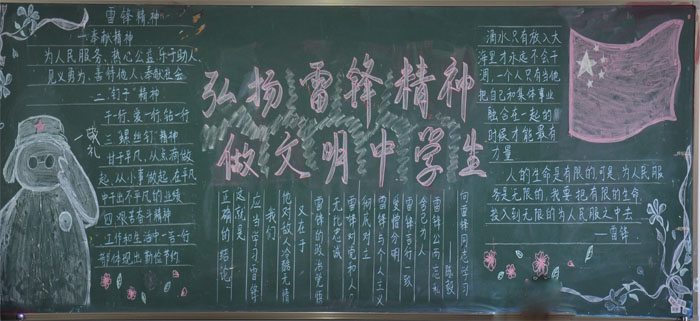 雷锋精神
一.奉献精神
为人民服务、热心公益、乐于助人、
见义勇为、善待他人、奉献社会
二."钉子"精神
干一行、爱一行、钻一行
三."螺丝钉"精神
甘于平凡、从点滴做
起、从小事做起、在平凡
中干出不平凡的业绩
四.艰苦奋斗精神
工作和生活中一言一行
都体现出勤俭节约
敬礼
弘扬雷锋精神
做文明中学生
向雷锋同志学习
——陈毅
雷锋公而忘私
舍己为人
雷锋言行一致
爱憎分明
雷锋与个人主义
何反对立
雷锋对党和人
无比忠诚
雷锋的政治觉悟
又在于
他对敌人冷酷无情
我们
应当学习雷锋
这就是
正确的结论
滴水只有放入大
海里才永远不会干
涸,一个人只有当他
把自己和集体事业
融合在一起的
时候才能最有
力量
人的生命是有限的,可是,为人民服
务是无限的,我要把有限的生命
投入到无限的为人民服务中去
——雷锋